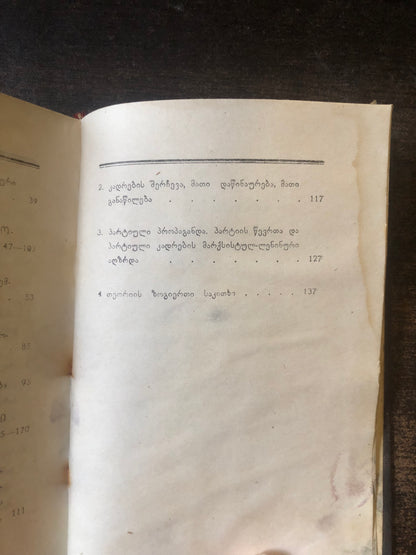 ური
39
47—107
ემ.
53
85
ბა, 95
5—170
111
2. კადრების შერჩევა, მათი დაწინაურება, მათი
განაწილება . . . . . . . 117
3. პარტიული პროპაგანდა, პარტიის წევრთა და
პარტიული კადრების მარქსისტულ-ლენინური
აღზრდა . . . . . . . 127
4 თეორიის ზოგიერთი საკითხი . . . . . 137